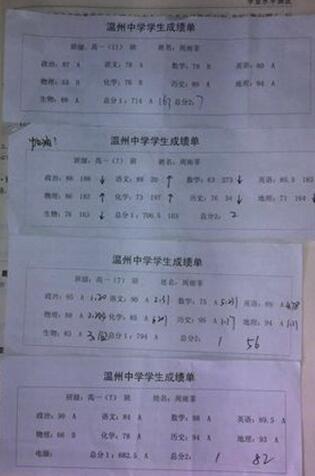 温州中学学生成绩单
班级：高一（7） 班 姓名：周雨菲
政治：87 A 语文：78 A 数学：78 B 英语：80 A
物理：53 B 化学：76 B 历史：89 A 地理：94 A
生物：89 A 总分1：714 A 167 总分2： 7
加油！
温州中学学生成绩单
班级：高一（7） 班 姓名：周雨菲
政治：66 188 ↓ 语文：88 20 ↑ 数学：63 273 ↓ 英语：85.5 182
物理：86 182 ↑ 化学：73 197 ↑ 历史：76 34 ↓ 地理：71 164 ↓
生物：76 163 ↓ 总分1：706.5 183 总分2： 2
温州中学学生成绩单
班级：高一（7） 班 姓名：周雨菲
政治：95 A 语文：90 A 数学：75 A 英语：89 A
物理：89 A 化学：85 A 历史：95 A 1.17 地理：94 A
生物：83 A 总分1：794 A 总分2： 1 56
温州中学学生成绩单
班级：高一（7） 班 姓名：周雨菲
政治：90 A 语文：84 A 数学：88 A 英语：89.5 A
物理：66 B 化学：78 A 历史：94 A 地理：93 A
电脑： 总分1：682.5 A 总分2： 1 82